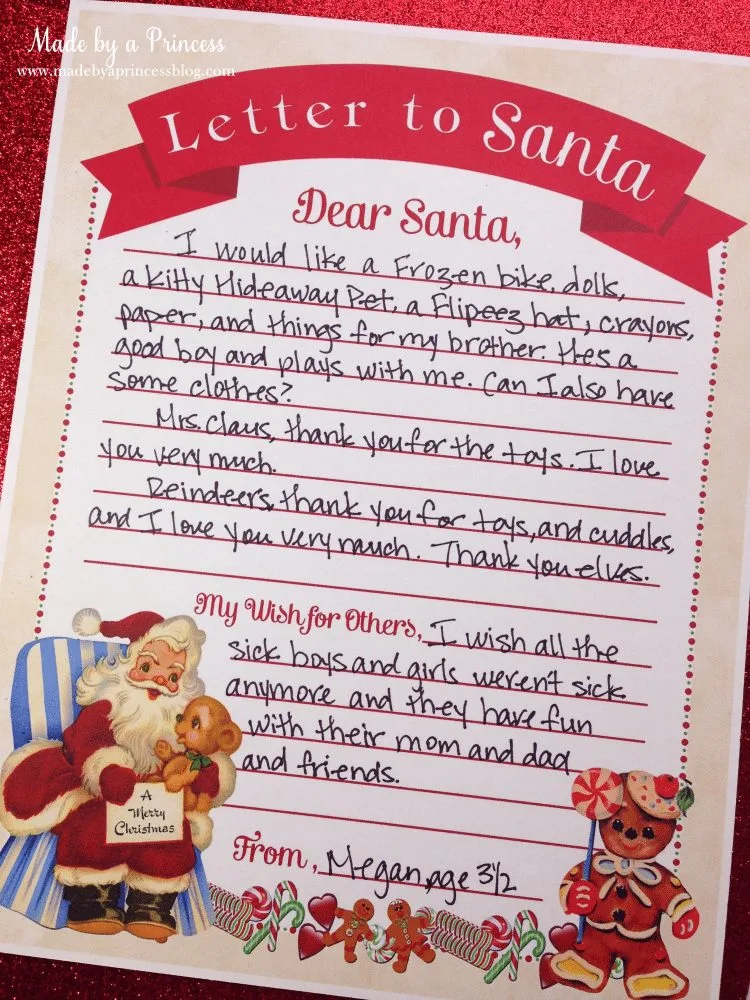 Made by a Princess
www.madebyaprincessblog.com
Letter to Santa
Dear Santa,
I would like a Frozen bike, dolls,
a Kitty Hideaway Pet, a Flipeez hat, crayons,
paper, and things for my brother. Hes a
good boy and plays with me. Can I also have
some clothes?
Mrs. Claus, thank you for the toys. I love
you very much.
Reindeers, thank you for toys, and cuddles,
and I love you very much. Thank you elves.
My Wish for Others, I wish all the
sick boys and girls weren't sick
anymore and they have fun
with their mom and dad
and friends.
A
Merry
Christmas
From, Megan, age 3 1/2